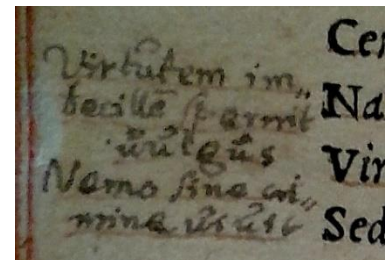 Virtŭtem im„
becillē spernit
ŭŭlgŭs
Nemo sine cri„
mine ŭiŭit
Cer
Na
Vir
Sed